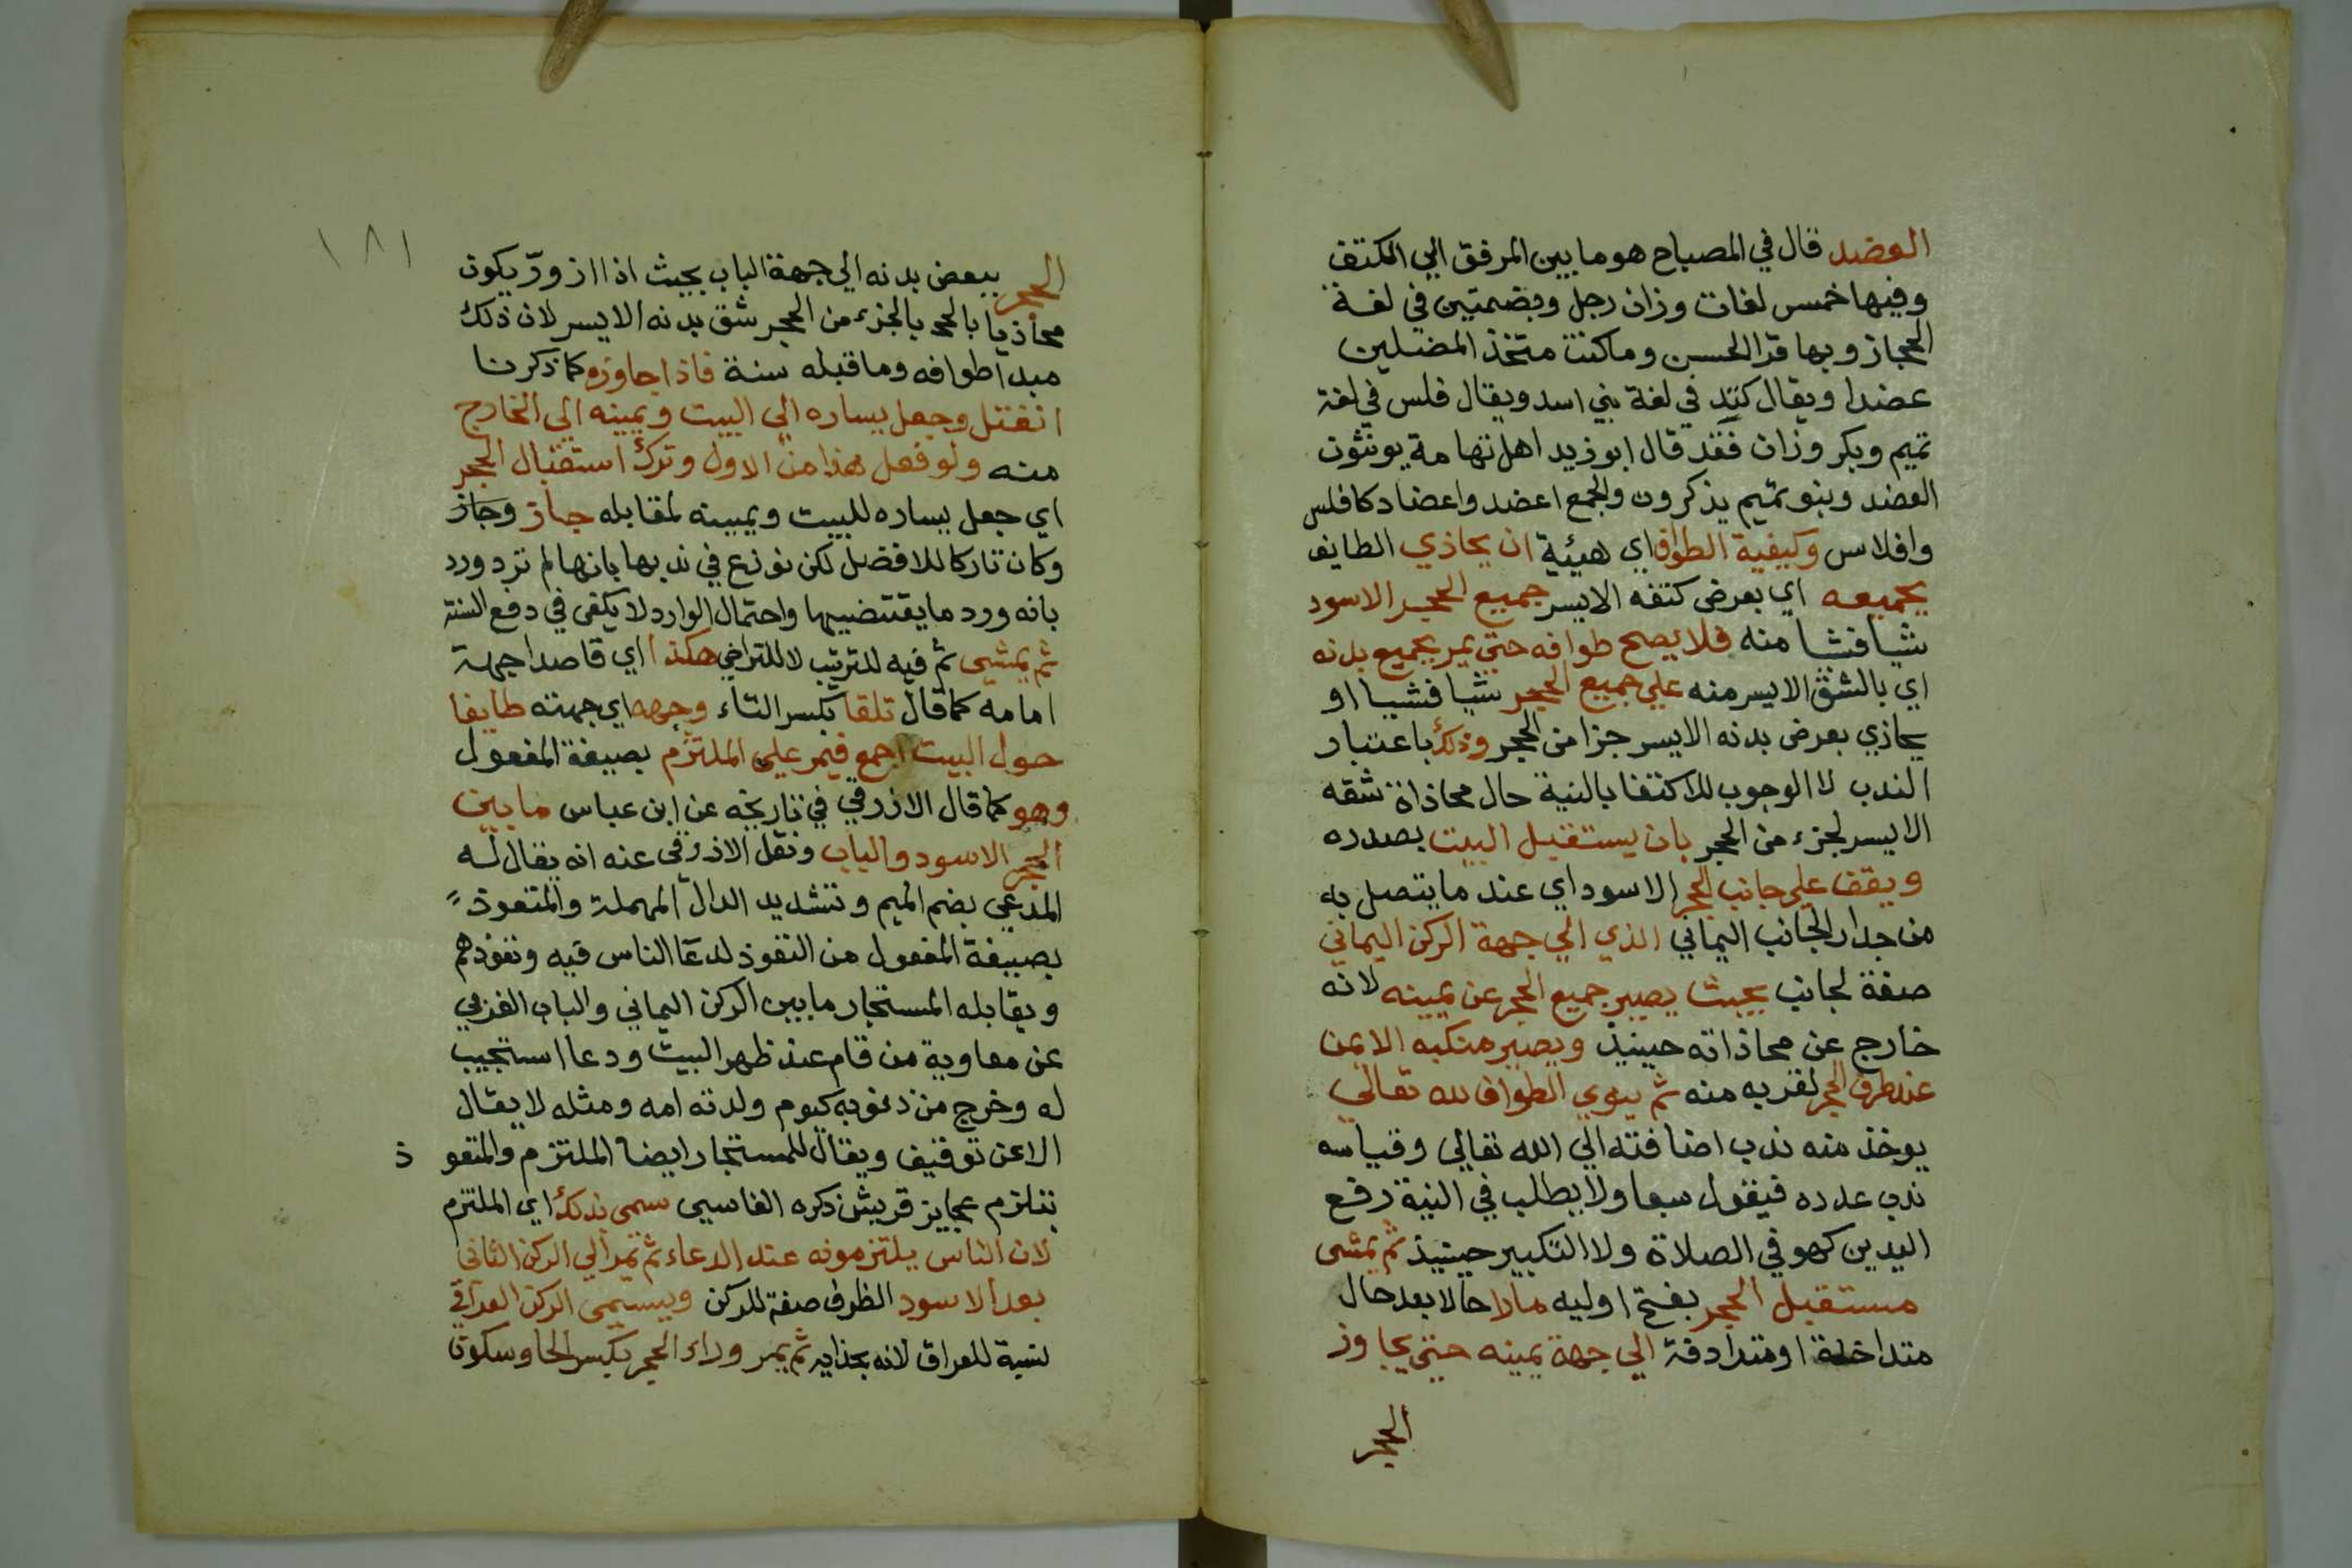 العضد قال في المصباح هو ما بين المرفق الي الكتف
وفيها خمس لغات وزان رجل وبضمتين في لغة
الحجاز وبها قرا الحسن وما كنت متخذ المضلين
عضدا ويقال كتد في لغة بني اسد ويقال فلس في لغة
تميم وبكر وزان فقد قال ابو زيد اهل تهامة يونثون
العضد وبنو تميم يذكرون والجمع اعضد واعضاد كافلس
وافلاس وكيفية الطواف اي هيئية ان يحاذي الطايف
بجميعه اي بعرض كتفه الايسر جميع الحجر الاسود
شيا فشا منه فلا يصح طوافه حتي يمر بجميع بدنه
اي بالشق الايسر منه علي جميع الحجر شيا فشيا او
يحاذي بعرض بدنه الايسر جزا من الحجر وذلك باعتبار
الندب لا الوجوب للاكتفا بالنية حال محاذاة شقه
الايسر لجزء من الحجر بان يستقبل البيت بصدره
ويقف علي جانب الحجر الاسود اي عند ما يتصل به
من جدار الجانب اليماني الذي الي جهة الركن اليماني
صفة لجانب بحيث يصير جميع الحجر عن يمينه لانه
خارج عن محاذاته حينيذ ويصير منكبه الايمن
عند طرف الحجر لقربه منه ثم ينوي الطواف لله تعالي
يوخذ منه ندب اضافته الي الله تعالي وقياسه
ندب عدده فيقول سبعا ولا يطلب في النية رفع
اليدين كهو في الصلاة ولا التكبير حينيذ ثم يمشي
مستقبل الحجر بفتح اوليه مارا حالا بعد حال
متداخلة او مترادفة الي جهة يمينه حتي يجاوز
الحجر
١٨١
الحجر ببعض بدنه الي جهة الباب بحيث اذا ازورّ يكون
محاذيا بالجزء من الحجر شق بدنه الايسر لان ذلك
مبدا طوافه وما قبله سنة فاذا جاوزه كما ذكرنا
انفتل وجعل يساره الي البيت ويمينه الي الخارج
منه ولو فعل هذا من الاول وترك استقبال الحجر
اي جعل يساره للبيت ويمينه لمقابله جاز وجاز
وكان تاركا للافضل لكن نوزع في ندبها بانها لم ترد ورد
بانه ورد ما يقتضيها واحتمال الوارد لا يكفي في دفع السنة
ثم يمشي ثم فيه للترتيب لا للتراخي هكذا اي قاصدا جهة
امامه كما قال تلقا بكسر التاء وجهه اي جهته طايفا
حول البيت اجمع فيمر علي الملتزم بصيغة المفعول
وهو كما قال الازرقي في تاريخه عن ابن عباس ما بين
الحجر الاسود والباب ونقل الازرقي عنه انه يقال له
المدعي بضم الميم وتشديد الدال المهملة والمتعوذ
بصيغة المفعول من التعوذ لدعا الناس فيه وتعوذهم
ويقابله المستجار ما بين الركن اليماني والباب الغربي
عن معاوية من قام عند ظهر البيت ودعا استجيب
له وخرج من ذنوبه كيوم ولدته امه ومثله لا يقال
الا عن توقيف ويقال للمستجار ايضا الملتزم والمتعوذ
بتلزم عجايز قريش ذكره الفاسيي سمي بذلك اي الملتزم
لان الناس يلتزمونه عند الدعاء ثم يمر الي الركن الثاني
بعد الاسود الظرف صفة للركن ويسمي الركن العراقي
نسبة للعراق لانه بحذايه ثم يمر وراء الحجر بكسر الحا وسكون